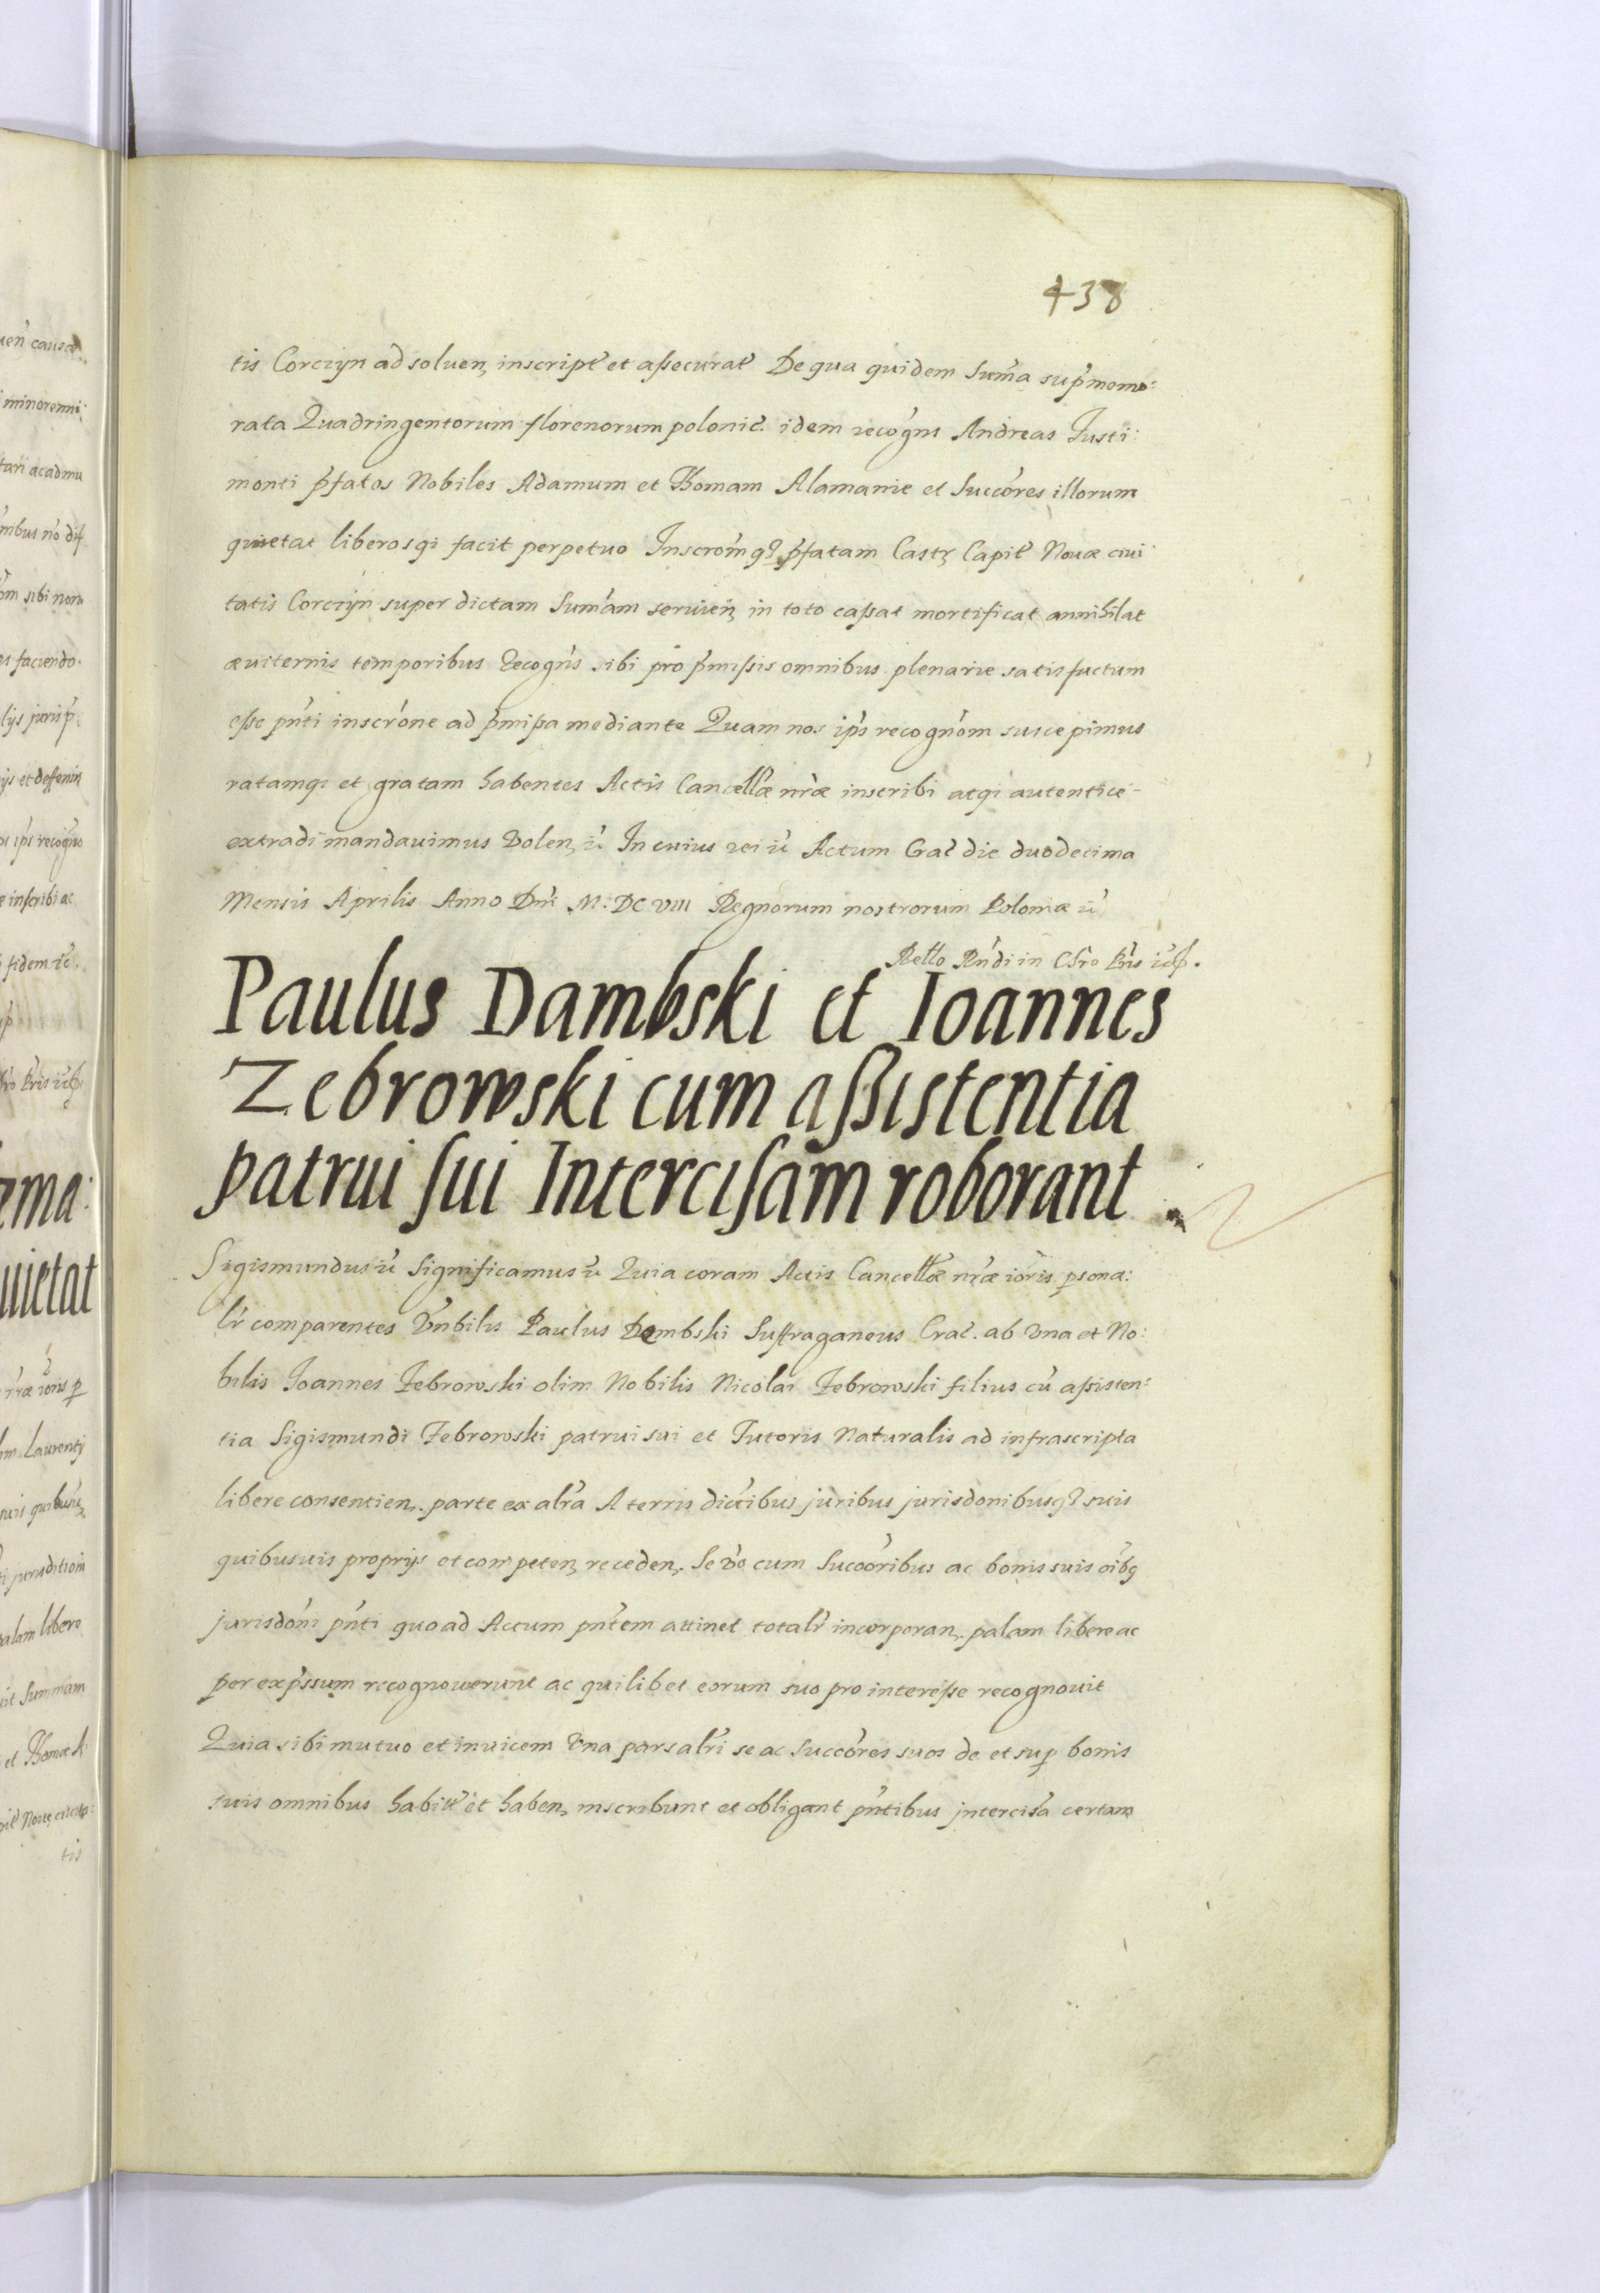 438
tis Corczyn ad soluen, inscript et assecurat De qua quidem Suma sup̃memo:
rata Quadringentorum florenorum polonic̃. idem recogñs Andreas Justi:
monti p̃fatos Nobiles Adamum et Thomam Alamanie et Succõres illorum
quietat liberosqȝ facit perpetuo Inscrom̃qȝ p̃fatam Castr̃ Capit̃ Novæ ciui
tatis Corczyn super dictam Sum̃am seruieñ in toto cassat mortificat annihilat
æuiternis temporibus Recogñs sibi pro p̃missis omnibus plenarie satisfactum
esse pñti inscrõne ad p̃missa mediante Quam nos ip̃s recognõm suscepimus
ratamqȝ et gratam habentes Actis Cancellæ nr̃æ inscribi atqȝ autentice
extradi mandauimus Volen, ĩc In cuius rei ĩc Actum Crac̃ die duodecima
Mensis Aprilis Anno Dñi M. DC VIII Regnorum nostrorum Poloniæ ĩc
Rello Rñdi in Chro Pr̃is
Paulus Dambski et Ioannes
Zebrowski cum aßistentia
patrui sui Intercisam roborant
Sigismundus ĩc Significamus ĩc Quia coram Actis Cancellæ nr̃æ iõris p̃sona:
lr̃ comparentes Vñbilis Paulus Dembski Suffraganeus Crac̃. ab vna et No:
bilis Joannes Zebrowski olim Nobilis Nicolai Zebrowski filius cũ assisten:
tia Sigismundi Zebrowski patrui sui et Tutoris Naturalis ad infrascripta
libere consentien, parte ex alr̃a A terris dictibus juribus jurisdonibusqȝ suis
quibusuis proprijs et competeñ receden, Se vẽ cum Succõribus ac bonis suis oĩbg
jurisdõni pñti quo ad Actum pñtem attinet totalr̃ incorporan, palam libere ac
per exp̃ssum recognouerunt ac quilibet eorum suo pro interesse recognouit
Quia sibi mutuo et inuicem Vna pars alr̃i se ac Succõres suos de et sup̃ bonis
suis omnibus habit̃ et haben, inscribunt et obligant pñtibus jntercisa certam